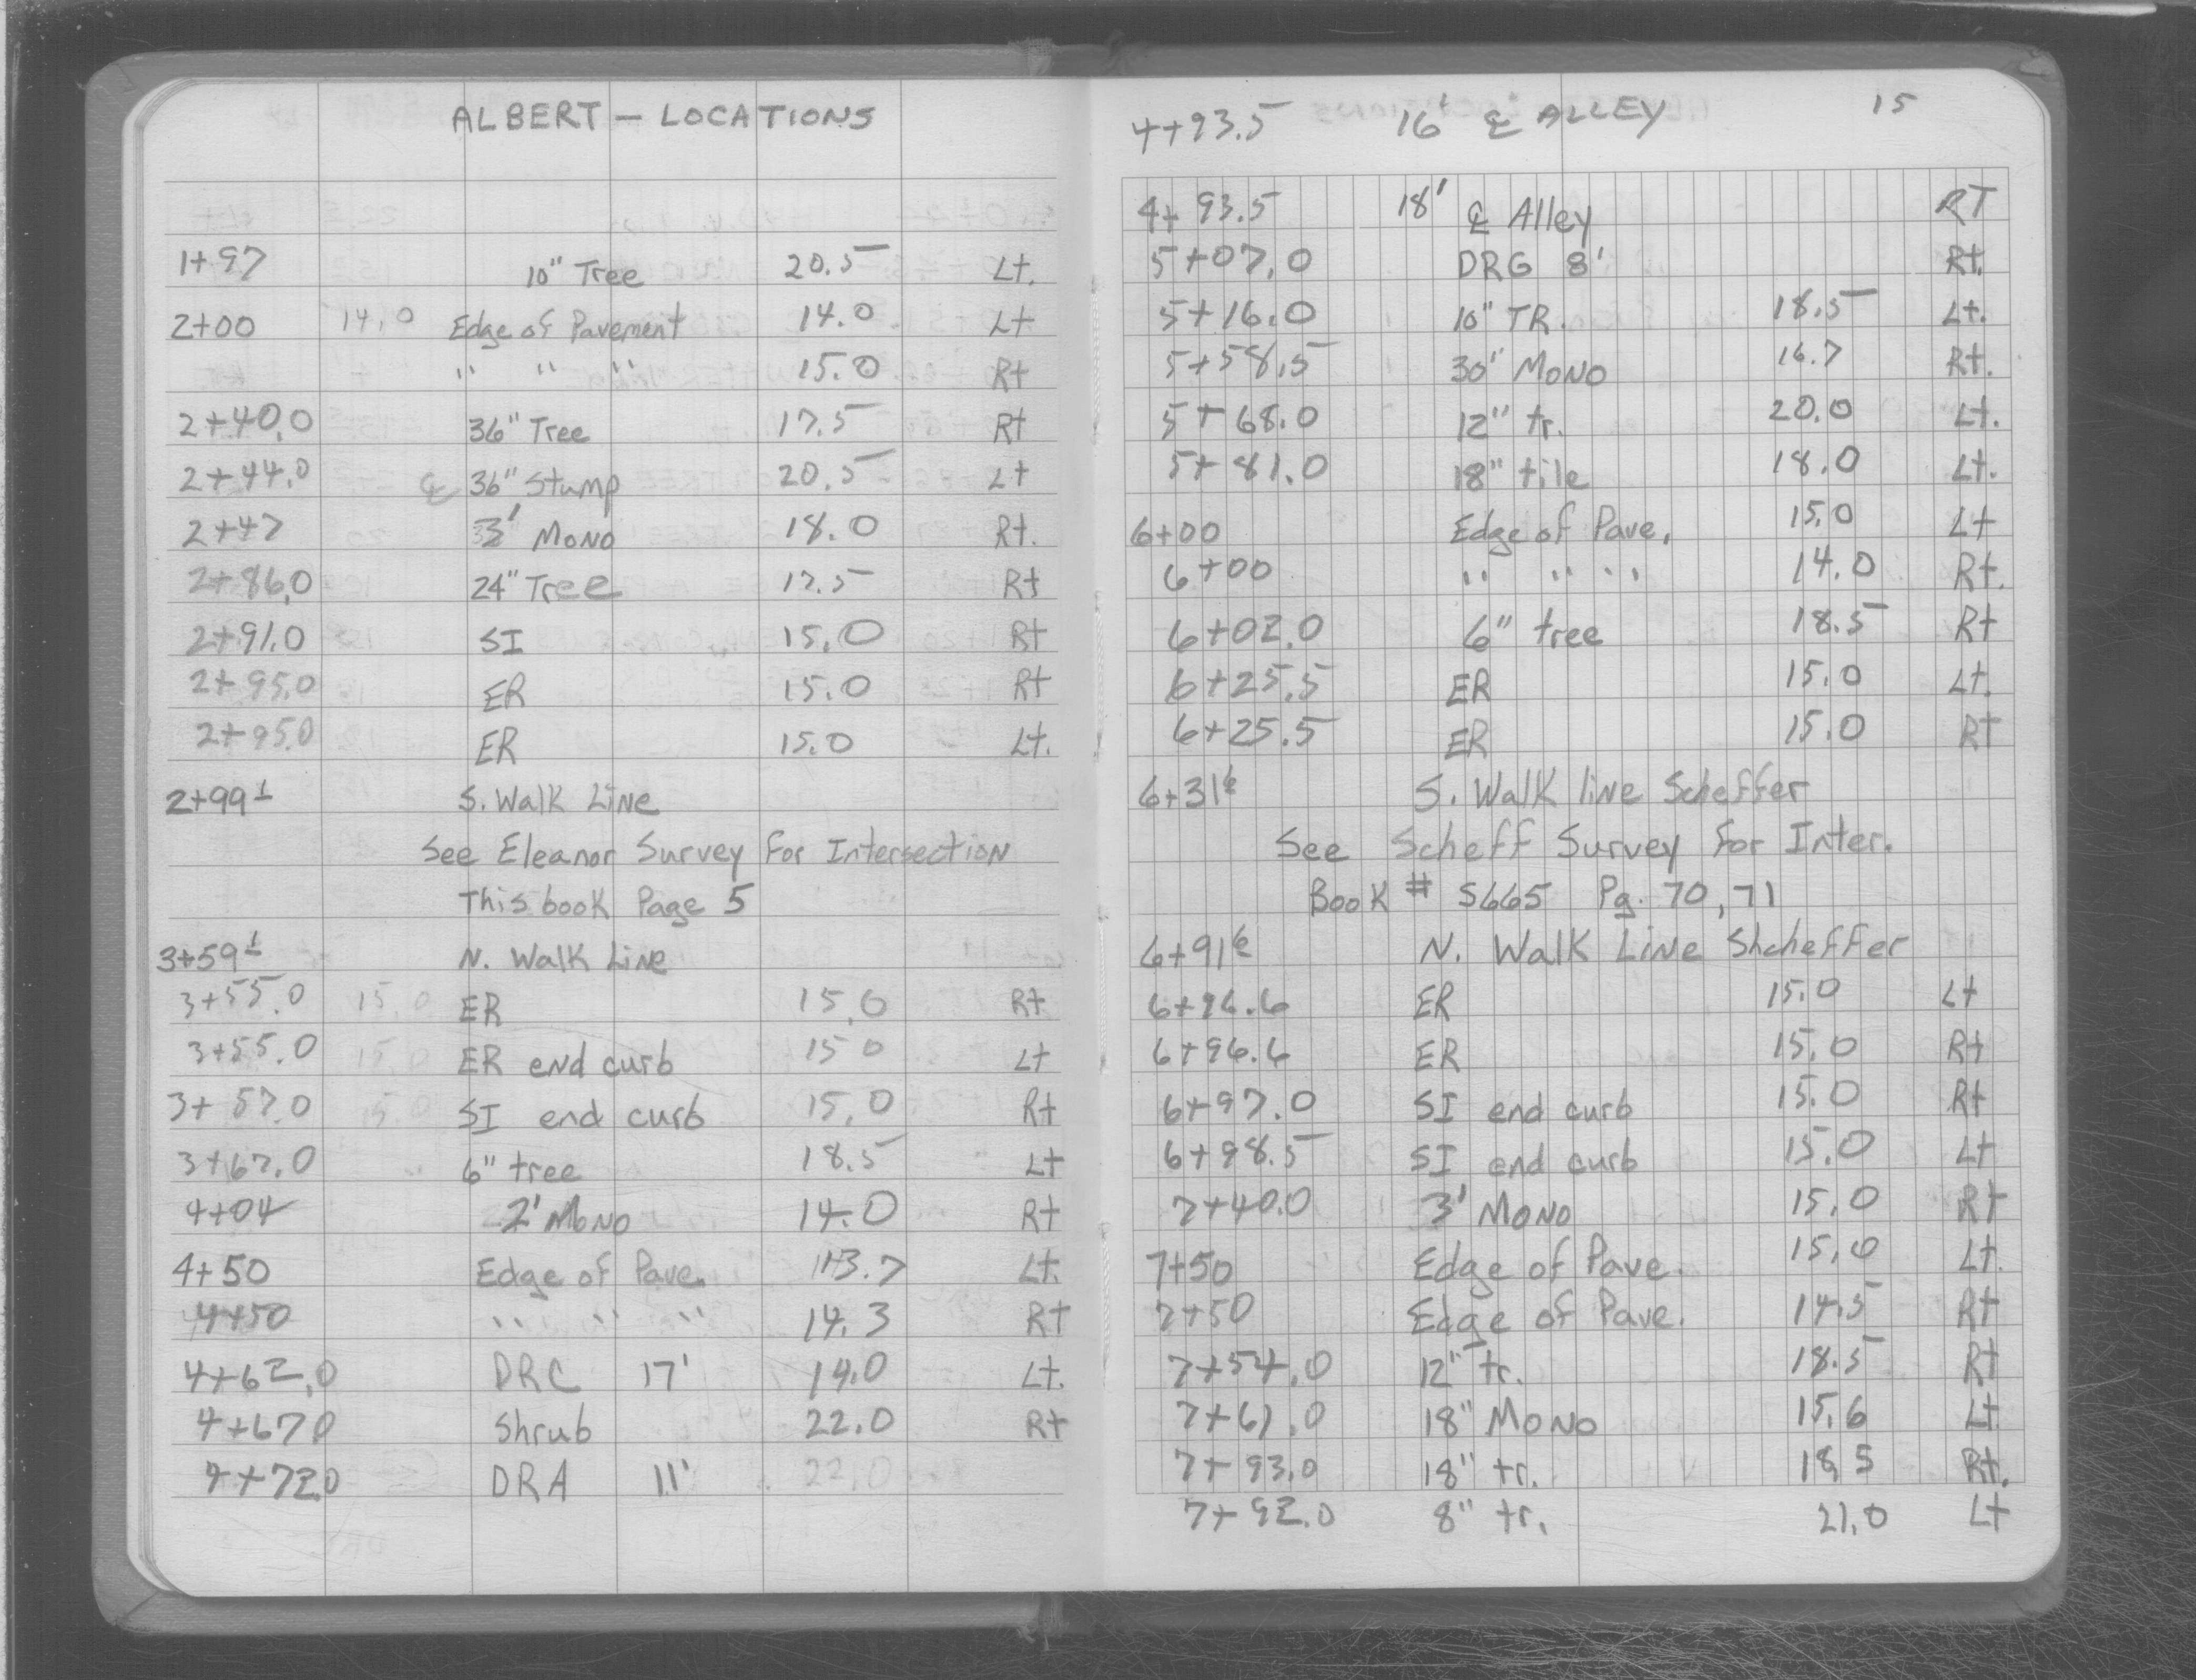 ALBERT — LOCATIONS
1+97 10" Tree 20.5 Lt.
2+00 14.0 Edge of Pavement 14.0 Lt
" " " 15.0 Rt
2+40.0 36" Tree 17.5 Rt
2+44.0 ℄ 36" Stump 20.5 Lt
2+47 3' MONO 18.0 Rt.
2+86.0 24" Tree 17.5 Rt
2+91.0 SI 15.0 Rt
2+95.0 ER 15.0 Rt
2+95.0 ER 15.0 Lt.
2+99 1 S. Walk Line
See Eleanor Survey For Intersection
This book Page 5
3+59 1 N. Walk Line
3+55.0 15.0 ER 15.0 Rt
3+55.0 15.0 ER end curb 15.0 Lt
3+57.0 15.0 SI end curb 15.0 Rt
3+67.0 6" tree 18.5 Lt
4+04 2' MONO 14.0 Rt
4+50 Edge of Pave. 13.7 Lt.
4+50 " " " 14.3 Rt
4+62.0 DRC 17' 14.0 Lt.
4+67.0 Shrub 22.0 Rt
4+72.0 DRA 11' 22.0
15
4+93.5 16' ℄ ALLEY
4+93.5 18' ℄ Alley RT
5+07.0 DRG 8' Rt.
5+16.0 10" TR. 18.5 Lt.
5+58.5 30" MONO 16.7 Rt.
5+68.0 12" tr. 20.0 Lt.
5+81.0 18" tile 18.0 Lt.
6+00 Edge of Pave. 15.0 Lt
6+00 " " " 14.0 Rt.
6+02.0 6" tree 18.5 Rt
6+25.5 ER 15.0 Lt.
6+25.5 ER 15.0 Rt
6+31 6 S. Walk line Scheffer
See Scheff Survey For Inter.
Book # 5665 Pg. 70,71
6+91 6 N. Walk Line Shcheffer
6+96.6 ER 15.0 Lt
6+96.6 ER 15.0 Rt
6+97.0 SI end curb 15.0 Rt
6+98.5 SI end curb 15.0 Lt
7+40.0 3' MONO 15.0 Rt
7+50 Edge of Pave. 15.0 Lt.
7+50 Edge of Pave. 14.5 Rt
7+54.0 12" tr. 18.5 Rt
7+61.0 18" MONO 15.6 Lt
7+93.0 18" tr. 18.5 Rt.
7+92.0 8" tr. 21.0 Lt